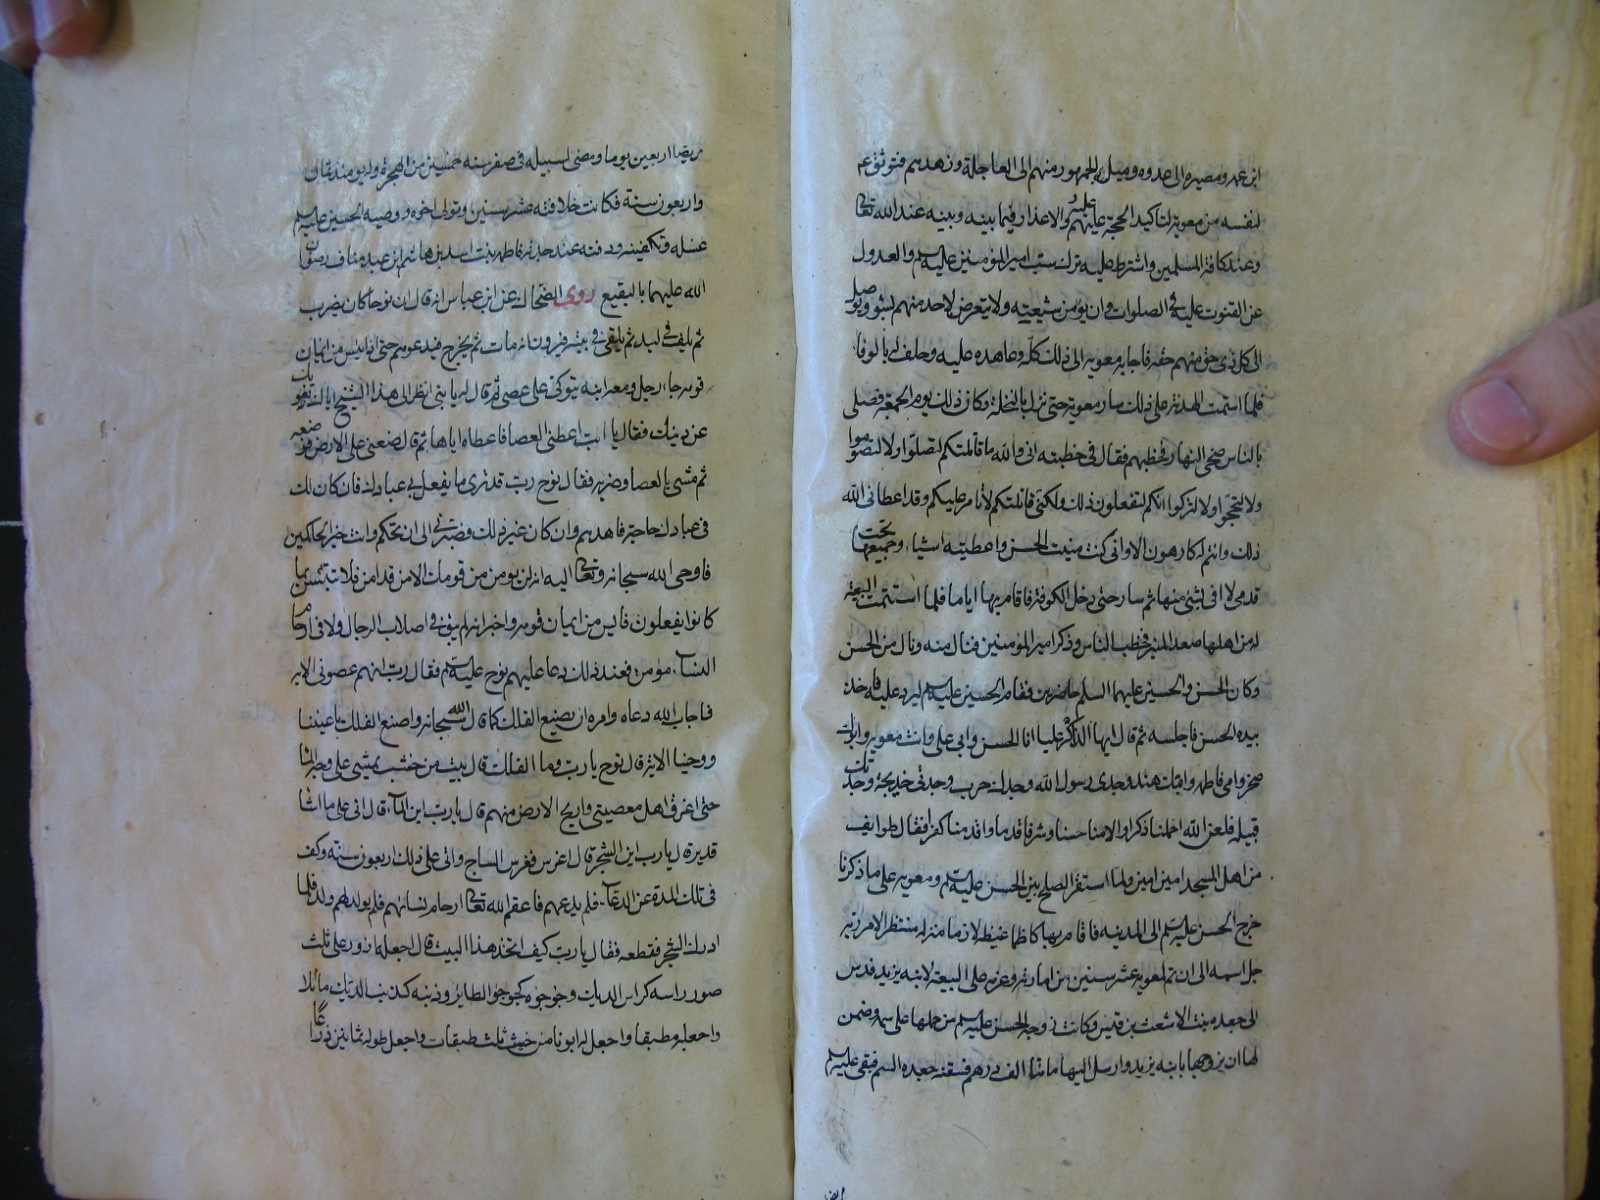 ابن عمه ومصيره الى عدوه وميل الجمهور منهم الى العاجلة وزهدهم فتوثق عم
لنفسه من معوية لتاكيد الحجة عليهم والاعذار فيما بينه وبينه عند الله تعالى
وعند كافة المسلمين واشترط عليه ترك سب امير المؤمنين عليه السلم والعدول
عن القنوت عليه فى الصلوات وان يؤمن شيعته ولا يتعرض لاحد منهم بسوء ويوصل
الى كل ذى حق منهم حقه فاجابه معويه الى ذلك كله وعاهده عليه وحلف له بالوفا
فلما استتمت الهدنة على ذلك سار معوية حتى نزل بالنخلة وكان ذلك يوم الجمعة فصلى
بالناس ضحى النهار فخطبهم فقال فى خطبته انى والله ما قاتلتكم لتصلوا ولا لتصوموا
ولا لتحجوا ولا لتزكوا انكم لتفعلون ذلك ولكنى قاتلتكم لأتامر عليكم وقد اعطانى الله
ذلك وانتم له كارهون الا وانى كنت منيت الحسن واعطيته اشياء وجميعها تحت
قدمى لا افى بشئ منها ثم سار حتى دخل الكوفة فاقام بها اياما فلما استتمت البيعة
له من اهلها صعد المنبر فخطب الناس وذكر امير المؤمنين فنال منه ونال من الحسن
وكان الحسن والحسين عليهما السلم حاضرين فقام الحسين عليه السلم ليرد عليه فاخذ
بيده الحسن فاجلسه ثم قال ايها الذاكر عليا انا الحسن وابى على وانت معويه وابوك
صخر وامى فاطمه وامك هند وجدى رسول الله وجدك حرب وجدتى خديجه وجدتك
قبيله فلعن الله اخملنا ذكرا والامنا حسبا وشرفا قدما واقدمنا كفرا فقال طوايف
من اهل المسجد امين امين ولما استقر الصلح بين الحسن عليه السلم ومعويه على ما ذكرنا
خرج الحسن عليه السلم الى المدينه فاقام بها كاظما غيظه لازما منزله منتظر الامر ربه
جل اسمه الى ان تم لمعويه عشر سنين من امارته وعزم على البيعة لابنه يزيد فدس
الى جعده بنت الاشعث بن قيس وكانت زوجه الحسن عليه السلم من حملها على سمه وضمن
لها ان يزوجها بابنه يزيد وارسل اليها مائة الف درهم فسقته جعده السم فبقى عليه السلم
مريضا
مريضا اربعين يوما ومضى لسبيله فى صفر سنه خمسين من الهجرة وله يومئذ ثمان
واربعون سنة فكانت خلافته عشر سنين وتولى اخوه ووصيه الحسين عليه السلم
غسله وتكفينه ودفنه عند جدته فاطمه بنت اسد بن هاشم ابن عبد مناف رضوان
الله عليهما بالبقيع روى الضحاك عن ابن عباس انه قال ان نوحا كان يضرب
ثم يلف فى لبد ثم يلقى فى بيته فيرون انه مات ثم يخرج فيدعوهم حتى اذا يئس من ايمان
قومه جاءه رجل ومعه ابنه يتوكئ على عصى ثم قال له يا بنى انظر الى هذا الشيخ اياك يغوينك
عن دينك فقال يا ابت اعطنى العصا فاعطاه اياها ثم قال ضعنى على الارض فوضعه
ثم مشى بالعصا وضربه فقال نوح رب قد ترى ما يفعل بى عبادك فان كان لك
فى عبادك حاجة فاهدهم وان كان غير ذلك فصبرنى الى ان تحكم وانت خير الحاكمين
فاوحى الله سبحانه وتعالى اليه انه لن يومن من قومك الا من قد امن فلا تبتئس بما
كانوا يفعلون فايس من ايمان قومه واخبر انه لم يبق فى اصلاب الرجال ولا فى ارحام
النساء مؤمن فعند ذلك دعا عليهم نوح عليه السلم فقال رب انهم عصونى الايه
فاجاب الله دعاه وامره ان يصنع الفلك كما قال الله سبحانه واصنع الفلك باعيننا
ووحينا الاية قال نوح يا رب وما الفلك قال بيت من خشب يمشى على وجه الماء
حتى اغرق اهل معصيتى واريح الارض منهم قال يا رب اين الماء قال انى على ما اشا
قدير قال يا رب اين الشجر قال اغرس فغرس الساج واتى على ذلك اربعون سنة وكف
فى تلك المدة عن الدعاء فلم يدعهم فاعقم الله تعالى ارحام نسائهم فلم يولد لهم ولد فلما
ادرك الشجر فقطعه فقال يا رب كيف اتخذ هذا البيت قال اجعله ازور على ثلث
صور راسه كراس الديك وجؤجؤه كجؤجؤ الطاير وذنبه كذنب الديك مائلا
واجعله مطبقا واجعل له ابوابا من خبث ثلث طبقات واجعل طوله ثمانين ذراعا